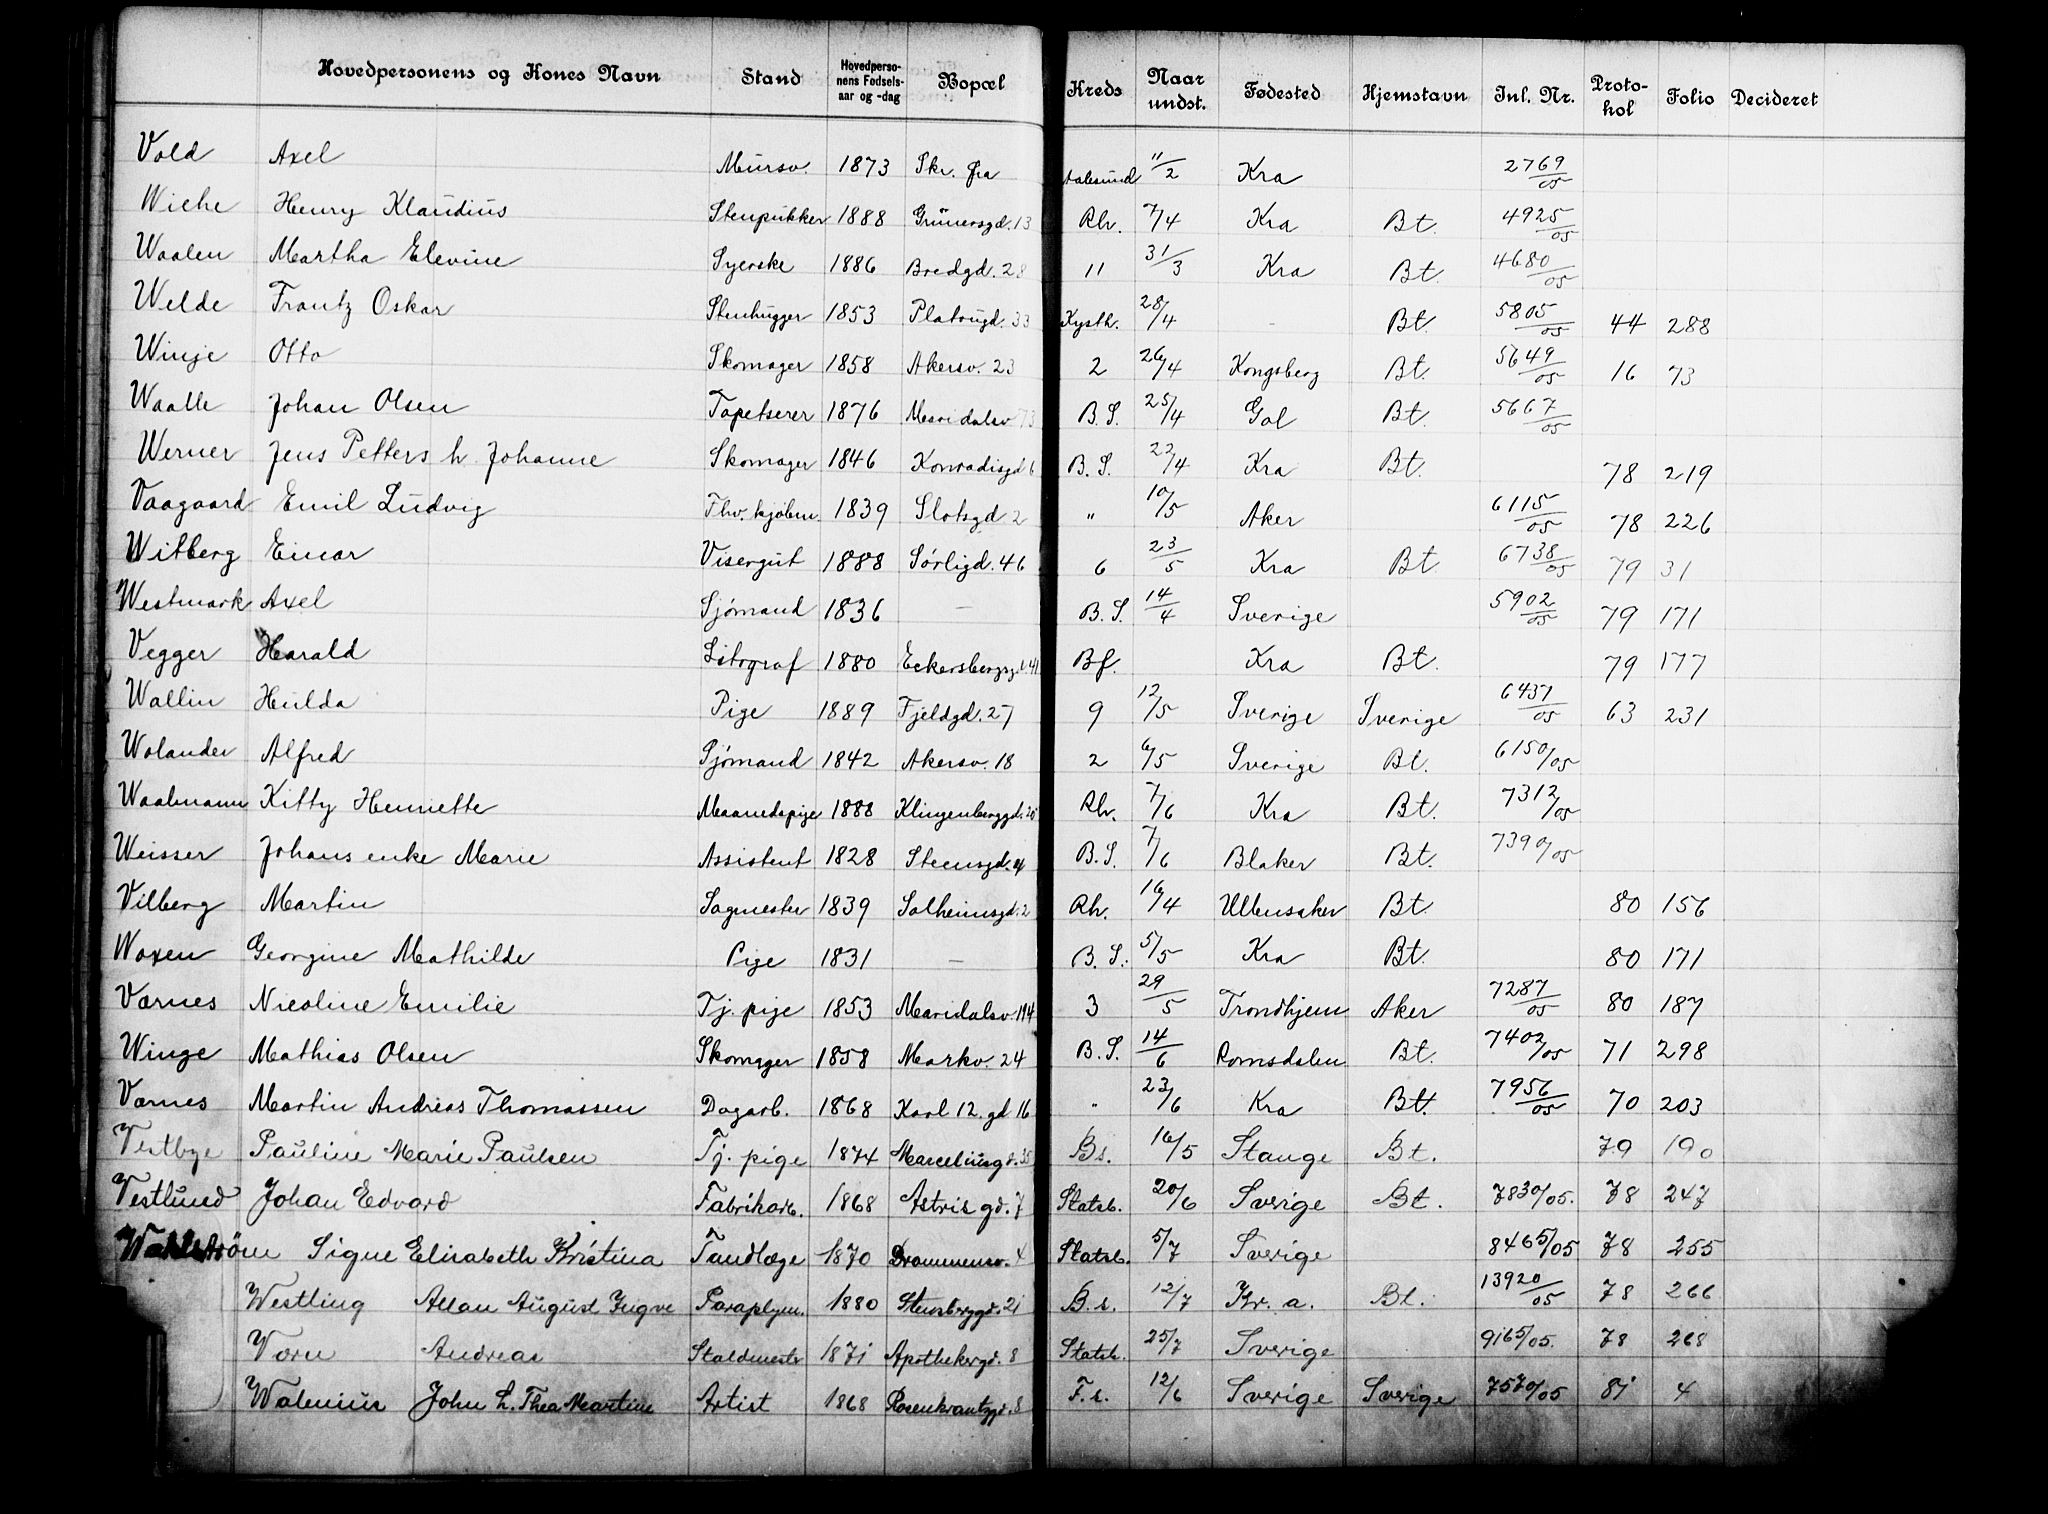 Hovedpersonens og Kones Navn Stand Hovedpersonens Fødselsaar og -dag Bopæl Kreds Naar undst. Fødested Hjemstavn Inl. Nr. Protokol Folio Decideret
Vold Axel Mursv. 1873 Skr. fra Aalesund 11/2 Kra 2769/05
Wiche Henry Klaudius Stenpukker 1888 Grünersgd. 13 Rh. 7/4 Kra Bt. 4925/05
Waalen Martha Elevine Syerske 1886 Bredgd. 28 11 31/3 Kra Bt. 4680/05
Welde Frantz Oskar Stenhugger 1853 Platougd. 33 Kysth. 28/4 - Bt. 5805/05 44 288
Winje Otto Skomager 1858 Akersv. 23 2 26/4 Kongsberg Bt. 5649/05 16 73
Waalle Johan Olsen Tapetserer 1876 Maridalsv 73 B. S. 25/4 Gol Bt. 5667/05
Werner Jens Petters h. Johanne Skomager 1846 Konradisgd 6 B. S. 22/4 Kra Bt. 78 219
Vaagaard Emil Ludvig Fhv. kjøbm. 1839 Slotsgd 2 " 10/5 Aker 6115/05 78 226
Witberg Einar Visergut 1888 Sørligd. 46 6 23/5 Kra Bt. 6738/05 79 31
Westmark Axel Sjømand 1836 - B. S. 14/4 Sverige 5902/05 79 171
Vegger Harald Litograf 1880 Eckersbergsgd. 41 Bf. Kra Bt. 79 177
Wallin Hulda Pige 1889 Fjeldgd. 27 9 12/5 Sverige Sverige 6437/05 63 231
Wolander Alfred Sjømand 1842 Akersv. 18 2 6/5 Sverige Bt. 6150/05
Waalmann Kitty Henriette Maanedspige 1888 Klingenberggd. 20 Rh. 7/6 Kra Bt. 7312/05
Weisser Johans enke Marie Assistent 1828 Steensgd. 4 B. S. 7/6 Blaker Bt. 7390/05
Vilberg Martin Sagmester 1839 Solheimsgd. 2 Rh. 16/4 Ullensaker Bt. 80 156
Woxen Georgine Mathilde Pige 1831 - B. S. 5/5 Kra Bt. 80 171
Værnes Nicoline Emilie Tj. pige 1853 Maridalsv. 194 3 29/5 Trondhjem Aker 7287/05 80 187
Winge Mathias Olsen Skomager 1858 Markv. 24 B. S. 14/6 Romsdalen Bt. 7402/05 71 298
Værnes Martin Andreas Thomassen Dagarb. 1868 Karl 12. gd 16 " 23/6 Kra Bt. 7956/05 70 203
Vestbye Pauline Marie Paulsen Tj. pige 1874 Marceliusgd. 35 Bs. 16/5 Stange Bt. 79 190
Vestlund Johan Edvard Fabrikarb. 1868 Astris gd. 7 Statsb. 20/6 Sverige Bt. 7830/05. 78 247
Wahlstrøm Signe Elisabeth Kristina Tandlæge 1870 Drammensv. 4 Statsb. 5/7 Sverige 8465/05 78 255
Westling Allan August Yngve Paraplym. 1880 Stensberggd. 21 B. s. 12/7 Kr. a. Bt. 13920/05 78 266
Vorn Andreas Staldmestr 1871 Apothekergd. 8 Statsb. 25/7 Sverige 9165/05. 78 268
Walenius John h. Thea Martine Artist 1868 Rosenkrantzgd. 8 F. s. 12/6 Sverige Sverige 7570/05 81 4